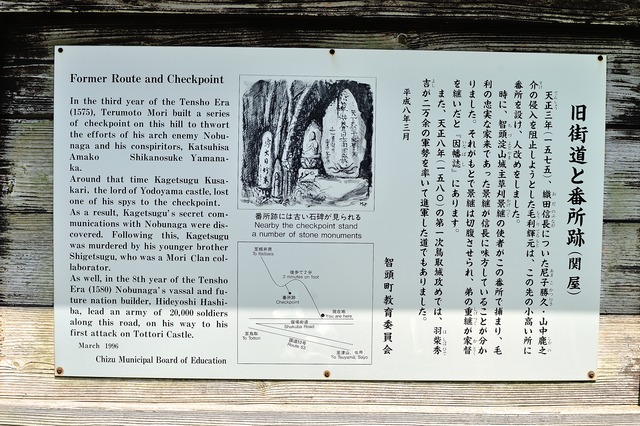 Former Route and Checkpoint
In the third year of the Tensho Era
(1575), Terumoto Mori built a series
of checkpoint on this hill to thwort
the efforts of his arch enemy Nobu-
naga and his conspiritors, Katsuhisa
Amako Shikanosuke Yamana-
ka.
Around that time Kagetsugu Kusa-
kari, the lord of Yodoyama castle, lost
one of his spys to the checkpoint.
As a result, Kagetsugu's secret com-
munications with Nobunaga were dis-
covered. Following this, Kagetsugu
was murdered by his younger brother
Shigetsugu, who was a Mori Clan col-
laborator.
As well, in the 8th year of the Tensho
Era (1580) Nobunaga's vassal and fu-
ture nation builder, Hideyoshi Hashi-
ba, lead an army of 20,000 soldiers
along this road, on his way to his
first attack on Tottori Castle.
March 1996
Chizu Municipal Board of Education
番所跡には古い石碑が見られる
Nearby the checkpoint stand
a number of stone monuments
徒歩で2分
2 minutes on foot
番所跡
Checkpoint
現在地
You are here
Shakuba Road
至鳥取
To Tottori
国道53号
Route 53
至津山、佐用
To Tsuyama, Sayo
旧街道と番所跡(関屋)
天正三年(一五七五)織田信長についた尼子勝久・山中鹿之
介の侵入を阻止しようとした毛利輝元は、この先の小高い所に
番所を設け、人改めをしました。
時に、智頭淀山城主草刈景継の使者がこの番所で捕まり、毛
利の忠実な家来であった景継が信長に味方していることが分か
りました。それがもとで景継は切腹させられ、弟の重継が家督
を継いだと『因幡誌』にあります。
また、天正八年(一五八〇)の第一次鳥取城攻めでは、羽柴秀
吉が二万余の軍勢を率いて進軍した道でもありました。
平成八年三月
智頭町教育委員会